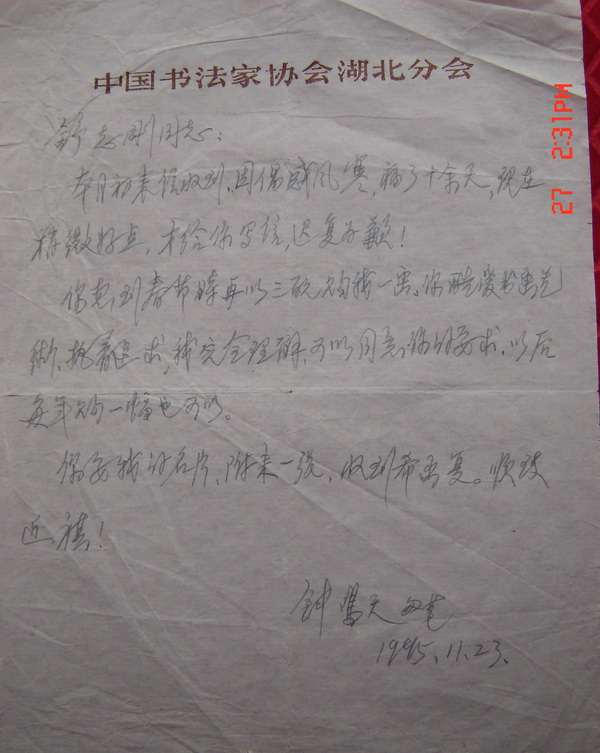 中国书法家协会湖北分会
舒志刚同志：
本月初来信收到，因伤感风寒，病了十余天，现在
稍微好点，才给你写信，迟复为歉！
你想到春节时再以三百购我一画。你酷爱书画艺
术，执着追求，我完全理解，可以同意你的要求，以后
每年购一幅也可以。
你要我的名片，附来一张，收到希函复。顺致
近祺！
钟鸣天
1995.11.23.
27 2:31PM